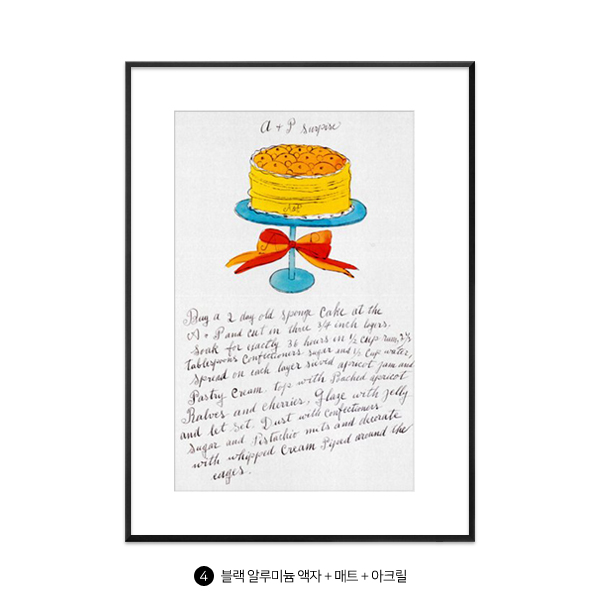 A + P Surprise
A&P
Buy a 2 day old sponge cake at the
A + P and cut in three 3/4 inch layers.
Soak for exactly 36 hours in ½ cup rum, 2½
tablespoons Confectioners sugar and ⅓ cup water,
Spread on each layer sieved apricot jam and
Pastry Cream. top with Poached apricot
Halves and cherries, Glaze with jelly
and let set. Dust with Confectioners
Sugar and Pistachio nuts and decorate
with whipped Cream Piped around the
edges.
4 블랙 알루미늄 액자 + 매트 + 아크릴